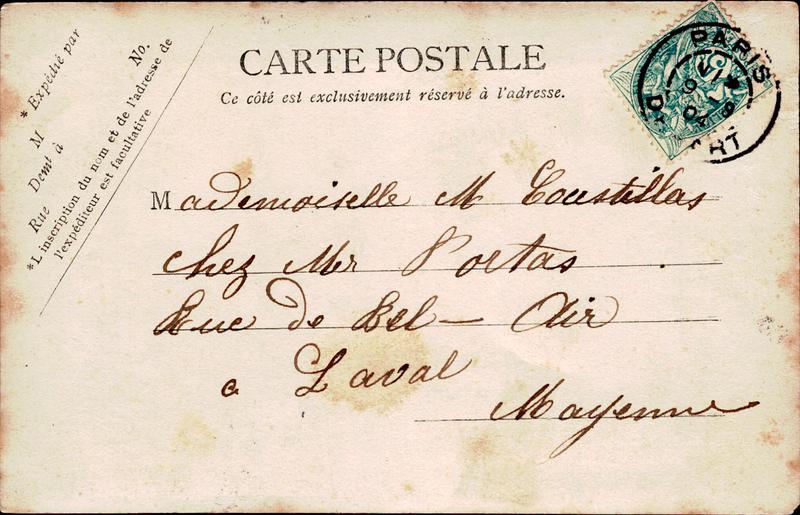 * Expédié par
M
No.
Demt à
Rue
*L inscription du nom et de l'adresse de
l'expéditeur est facultative
CARTE POSTALE
Ce côté est exclusivement réservé à l'adresse.
PARIS
DÉPART
Mademoiselle M Coustillas
chez Mr Portas
Rue de Bel - Air
a Laval
Mayenne